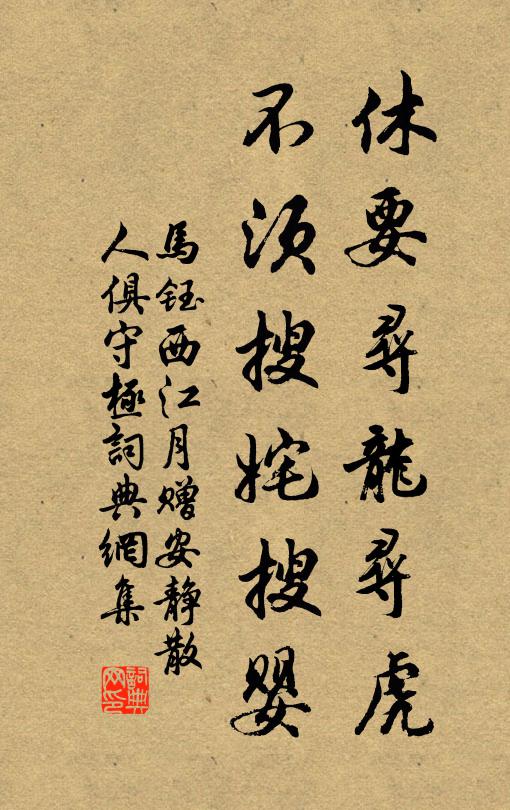 休要尋龍尋虎
不須搜姹搜嬰
馬鈺西江月贈安靜散
人俱守極詞典網集
詞典
网印